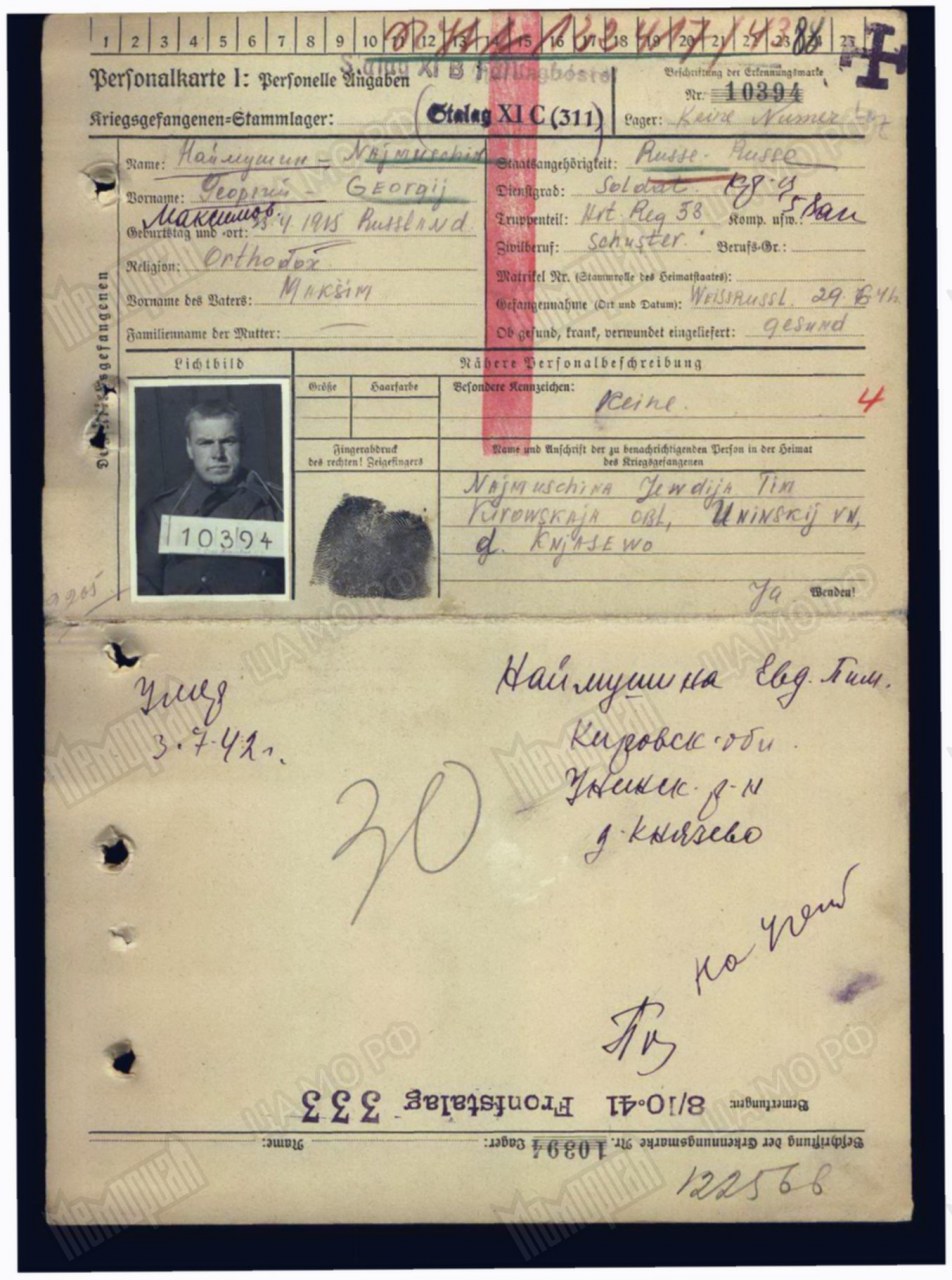 1 2 3 4 5 6 7 8 9 10 11 12 13 14 15 16 17 18 19 20 21 22 23 24 25
Personalkarte I: Personelle Angaben
Stalag XI B Fallingbostel
Beschriftung der Erkennungsmarke
Nr. 10394
Kriegsgefangenen-Stammlager: Stalag XI C (311)
Lager: Keine Numer
Name: Наймушин - Najmuschin
Vorname: Георгий Georgij
Максимов.
Geburtstag und -ort: 4 1915 Russland
Religion: Orthodox.
Vorname des Vaters: Maksim
Familienname der Mutter: —
Staatsangehörigkeit: Russe - Russe
Dienstgrad: Soldat.
Truppenteil: Art. Reg 58 Komp. usw.:
Zivilberuf: Schuster. Berufs-Gr.:
Matrikel Nr. (Stammrolle des Heimatstaates):
Gefangennahme (Ort und Datum): Weissrussl. 29.
Ob gesund, krank, verwundet eingeliefert: gesund
Des Kriegsgefangenen
Lichtbild
Nähere Personalbeschreibung
Größe Haarfarbe Besondere Kennzeichen:
Keine.
4
10394
Fingerabdruck
des rechten! Zeigefingers
Name und Anschrift der zu benachrichtigenden Person in der Heimat
des Kriegsgefangenen
Najmuschina Jewdija Tim
Kirowskaja obl, Uninskij
d. Knjasewo
Ja Wenden!
Наймушина Евд. Тим.
Кировск. обл.
Унинск. р-н
д. Князево
Умер
3.7.42 г.
30
На учет
Bemerkungen: 8/10.41 Frontstalag 333
Beschriftung der Erkennungsmarke Nr. 10394 Lager: Name:
122566
Мемориал
ЦАМО РФ